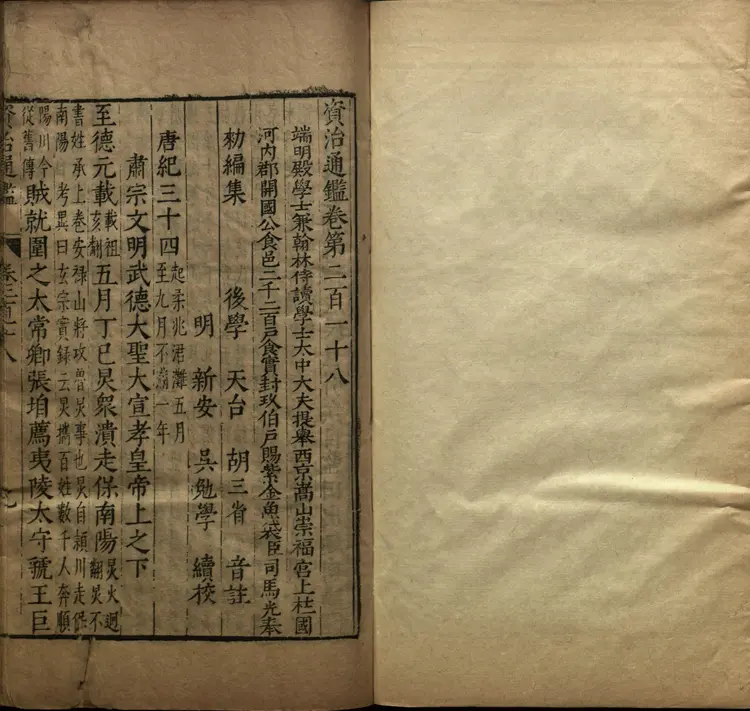 資治通鑑卷第二百一十八
端明殿學士兼翰林侍讀學士太中大夫提舉西京嵩山崇福宮上柱國
河内郡開國公食邑二千二百戸食實封玖伯戸賜紫金魚袋臣司馬光奉
勑編集 後學 天台 胡三省 音註
明 新安 吳勉學 續校
唐紀三十四 起柔兆涒灘五月
至九月不滿一年
肅宗文明武德大聖大宣孝皇帝上之下
至德元載 載祖
亥翻 五月丁巳炅衆潰走保南陽 炅火迥
翻炅不
書姓承上卷安祿山將攻魯炅事也炅自潁川走保
南陽 考異曰玄宗實錄云炅攜百姓數千人奔順
陽川今
從舊傳 賊就圍之太常卿張垍薦夷陵太守虢王巨
資治通鑑 卷二百一十八